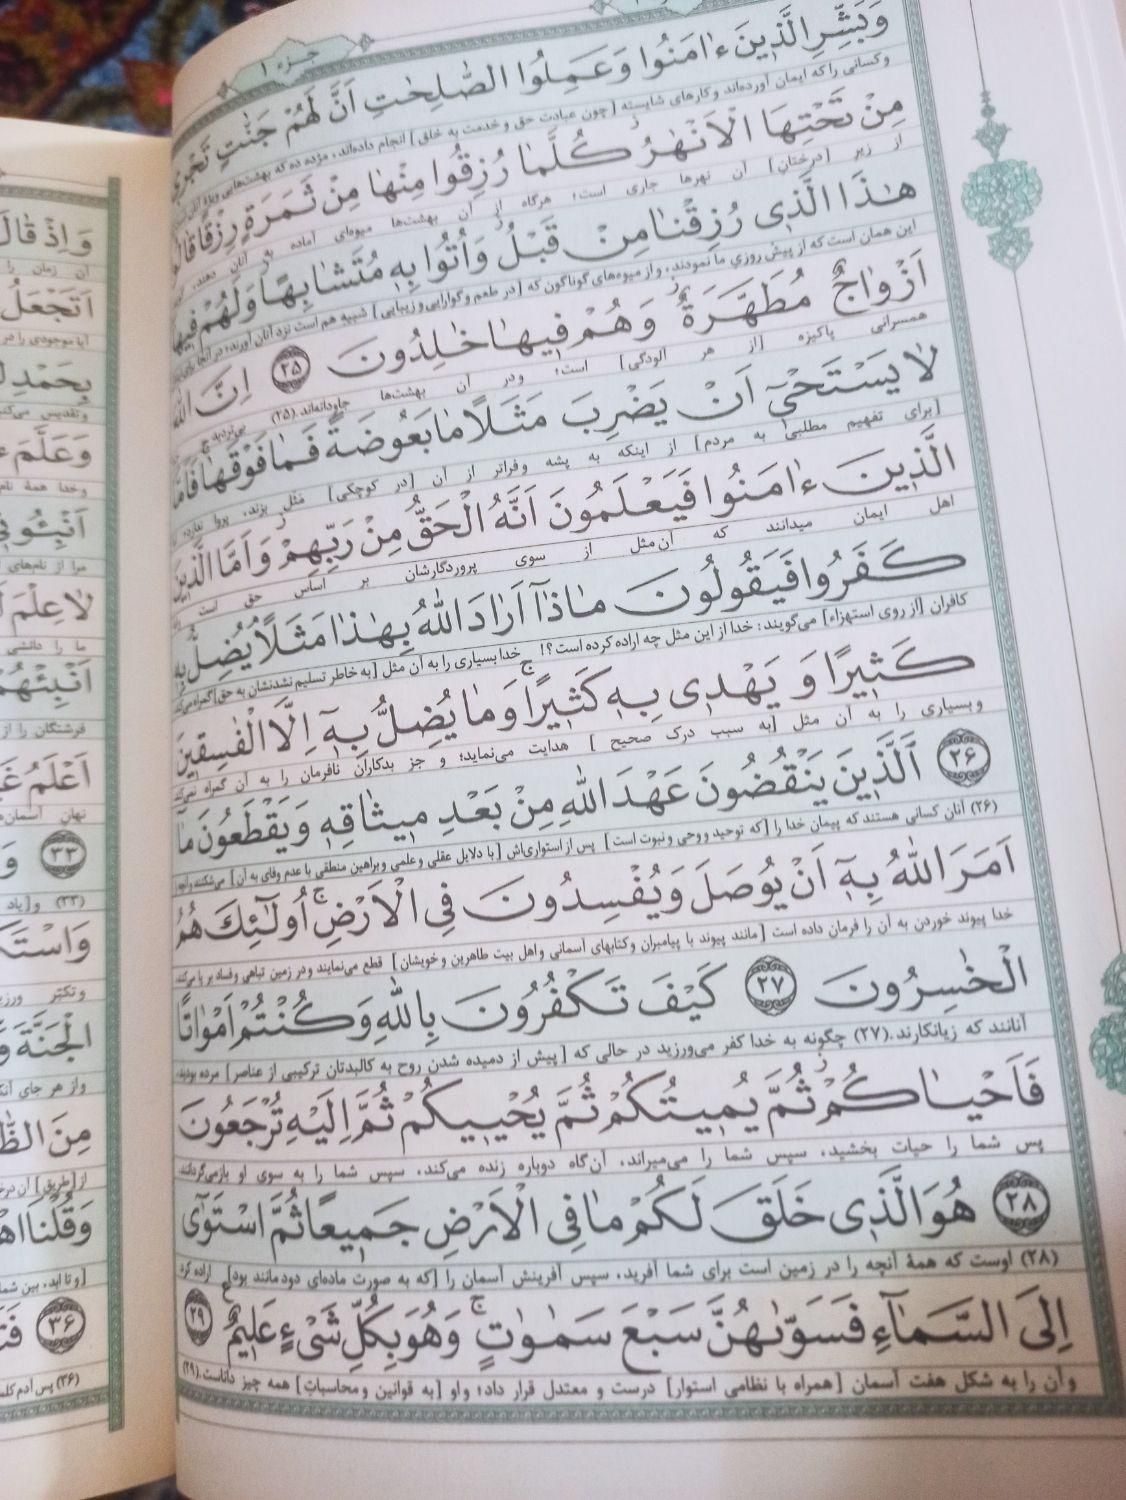 جزء ۱
وَبَشِّرِ الَّذِينَ ءٰامَنُوا وَعَمِلُوا الصّٰلِحٰتِ اَنَّ لَهُمْ جَنّٰتٍ تَجْرِی
وکسانی را که ایمان آورده‌اند وکارهای شایسته [چون عبادت حق و خدمت به خلق] انجام داده‌اند، مژده ده که بهشت‌هایی ویژۀ آنان
مِنْ تَحْتِهَا الْاَنْهٰرُ كُلَّمٰا رُزِقُوا مِنْهٰا مِنْ ثَمَرَةٍ رِزْقًا قٰالُوا
از زیر [درختانِ] آن نهرها جاری است؛ هرگاه از آن بهشت‌ها میوه‌ای آماده به آنان دهند، گویند
هٰذَا الَّذِی رُزِقْنٰا مِنْ قَبْلُ وَاُتُوا بِهِ مُتَشٰابِهًا وَلَهُمْ فِيهٰا
این همان است که از پیش روزیِ ما نمودند، و از میوه‌های گوناگون که [در طعم و گوارایی و زیبایی] شبیه هم است نزد آنان آورند؛ در آنجا
اَزْوٰاجٌ مُطَهَّرَةٌ وَهُمْ فِيهٰا خٰلِدُونَ ۲۵ اِنَّ اللهَ
همسرانی پاکیزه [از هر آلودگی] است؛ و در آن بهشت‌ها جاودانه‌اند.(۲۵) بی‌تردید
لٰا يَسْتَحْیِ اَنْ يَضْرِبَ مَثَلًا مٰا بَعُوضَةً فَمٰا فَوْقَهٰا فَاَمَّا
[برای تفهیم مطلبی به مردم] از اینکه به پشه وفراتر از آن [در کوچکی] مَثَل بزند، پروا ندارد؛
الَّذِينَ ءٰامَنُوا فَيَعْلَمُونَ اَنَّهُ الْحَقُّ مِنْ رَبِّهِمْ وَاَمَّا الَّذِينَ
اهل ایمان میدانند که آن مثل از سوی پروردگارشان بر اساس حق است
كَفَرُوا فَيَقُولُونَ مٰاذٰا اَرٰادَ اللهُ بِهٰذٰا مَثَلًا يُضِلُّ بِهِ
کافران [از روی استهزاء] می‌گویند: خدا از این مثل چه اراده کرده است؟! خدا بسیاری را به آن مثل [به خاطر تسلیم نشدنشان به حق] گمراه می‌کند
كَثِيرًا وَ يَهْدِی بِهِ كَثِيرًا وَمٰا يُضِلُّ بِهِ اِلَّا الْفٰسِقِينَ
وبسیاری را به آن مثل [به سبب درک صحیح] هدایت می‌نماید؛ و جز بدکاران نافرمان را به آن گمراه نمی‌کند
۲۶ اَلَّذِينَ يَنْقُضُونَ عَهْدَ اللهِ مِنْ بَعْدِ مِيثٰاقِهِ وَيَقْطَعُونَ مٰا
(۲۶) آنان کسانی هستند که پیمان خدا را [که توحید و وحی و نبوت است] پس از استواری‌اش [با دلایل عقلی و علمی و براهین منطقی با عدم وفای به آن] می‌شکنند و آنچه
اَمَرَ اللهُ بِهِ اَنْ يُوصَلَ وَيُفْسِدُونَ فِی الْاَرْضِ اُولٰئِكَ هُمُ
خدا پیوند خوردن به آن را فرمان داده است [مانند پیوند با پیامبران وکتابهای آسمانی واهل بیت طاهرین و خویشان] قطع می‌نمایند و در زمین تباهی و فساد بر پا می‌کنند،
الْخٰسِرُونَ ۲۷ كَيْفَ تَكْفُرُونَ بِاللهِ وَكُنْتُمْ اَمْوٰاتًا
آنانند که زیانکارند.(۲۷) چگونه به خدا کفر می‌ورزید در حالی که [پیش از دمیده شدن روح به کالبدتان ترکیبی از عناصر] مرده بودید،
فَاَحْيٰاكُمْ ثُمَّ يُمِيتُكُمْ ثُمَّ يُحْيِيكُمْ ثُمَّ اِلَيْهِ تُرْجَعُونَ
پس شما را حیات بخشید، سپس شما را می‌میراند، آن‌گاه دوباره زنده می‌کند، سپس شما را به سوی او بازمی‌گردانند.
۲۸ هُوَ الَّذِی خَلَقَ لَكُمْ مٰا فِی الْاَرْضِ جَمِيعًا ثُمَّ اسْتَوٰی
(۲۸) اوست که همۀ آنچه را در زمین است برای شما آفرید، سپس آفرینش آسمان را [که به صورت ماده‌ای دود مانند بود] اراده کرد
اِلَی السَّمٰاءِ فَسَوّٰىهُنَّ سَبْعَ سَمٰوٰتٍ وَهُوَ بِكُلِّ شَیْءٍ عَلِيمٌ ۲۹
و آن را به شکل هفت آسمان [همراه با نظامی استوار] درست و معتدل قرار داد؛ و او [به قوانین و محاسباتِ] همه چیز داناست.(۲۹)
وَاِذْ قٰالَ
آن زمان را
اَتَجْعَلُ
آیا موجودی را در
بِحَمْدِ
وتقدیس می‌کنیم
وَعَلَّمَ
وخدا همۀ
اَنْبِئُو
مرا از نام‌های
لٰا عِلْمَ
ما را دانشی
اَنْبِئْهُمْ
فرشتگان را از
اَعْلَمُ
نهانِ آسمان‌ها
۳۳ وَ
(۳۳) و [یاد
وَاسْتَكْ
وتکبّر
الْجَنَّةَ وَ
واز هر جای آن
مِنَ الظّٰ
از [طریق] آن
وَقُلْنَا اهْ
[و تا ابد، بین
۳۶ فَتَ
(۳۶) پس آدم